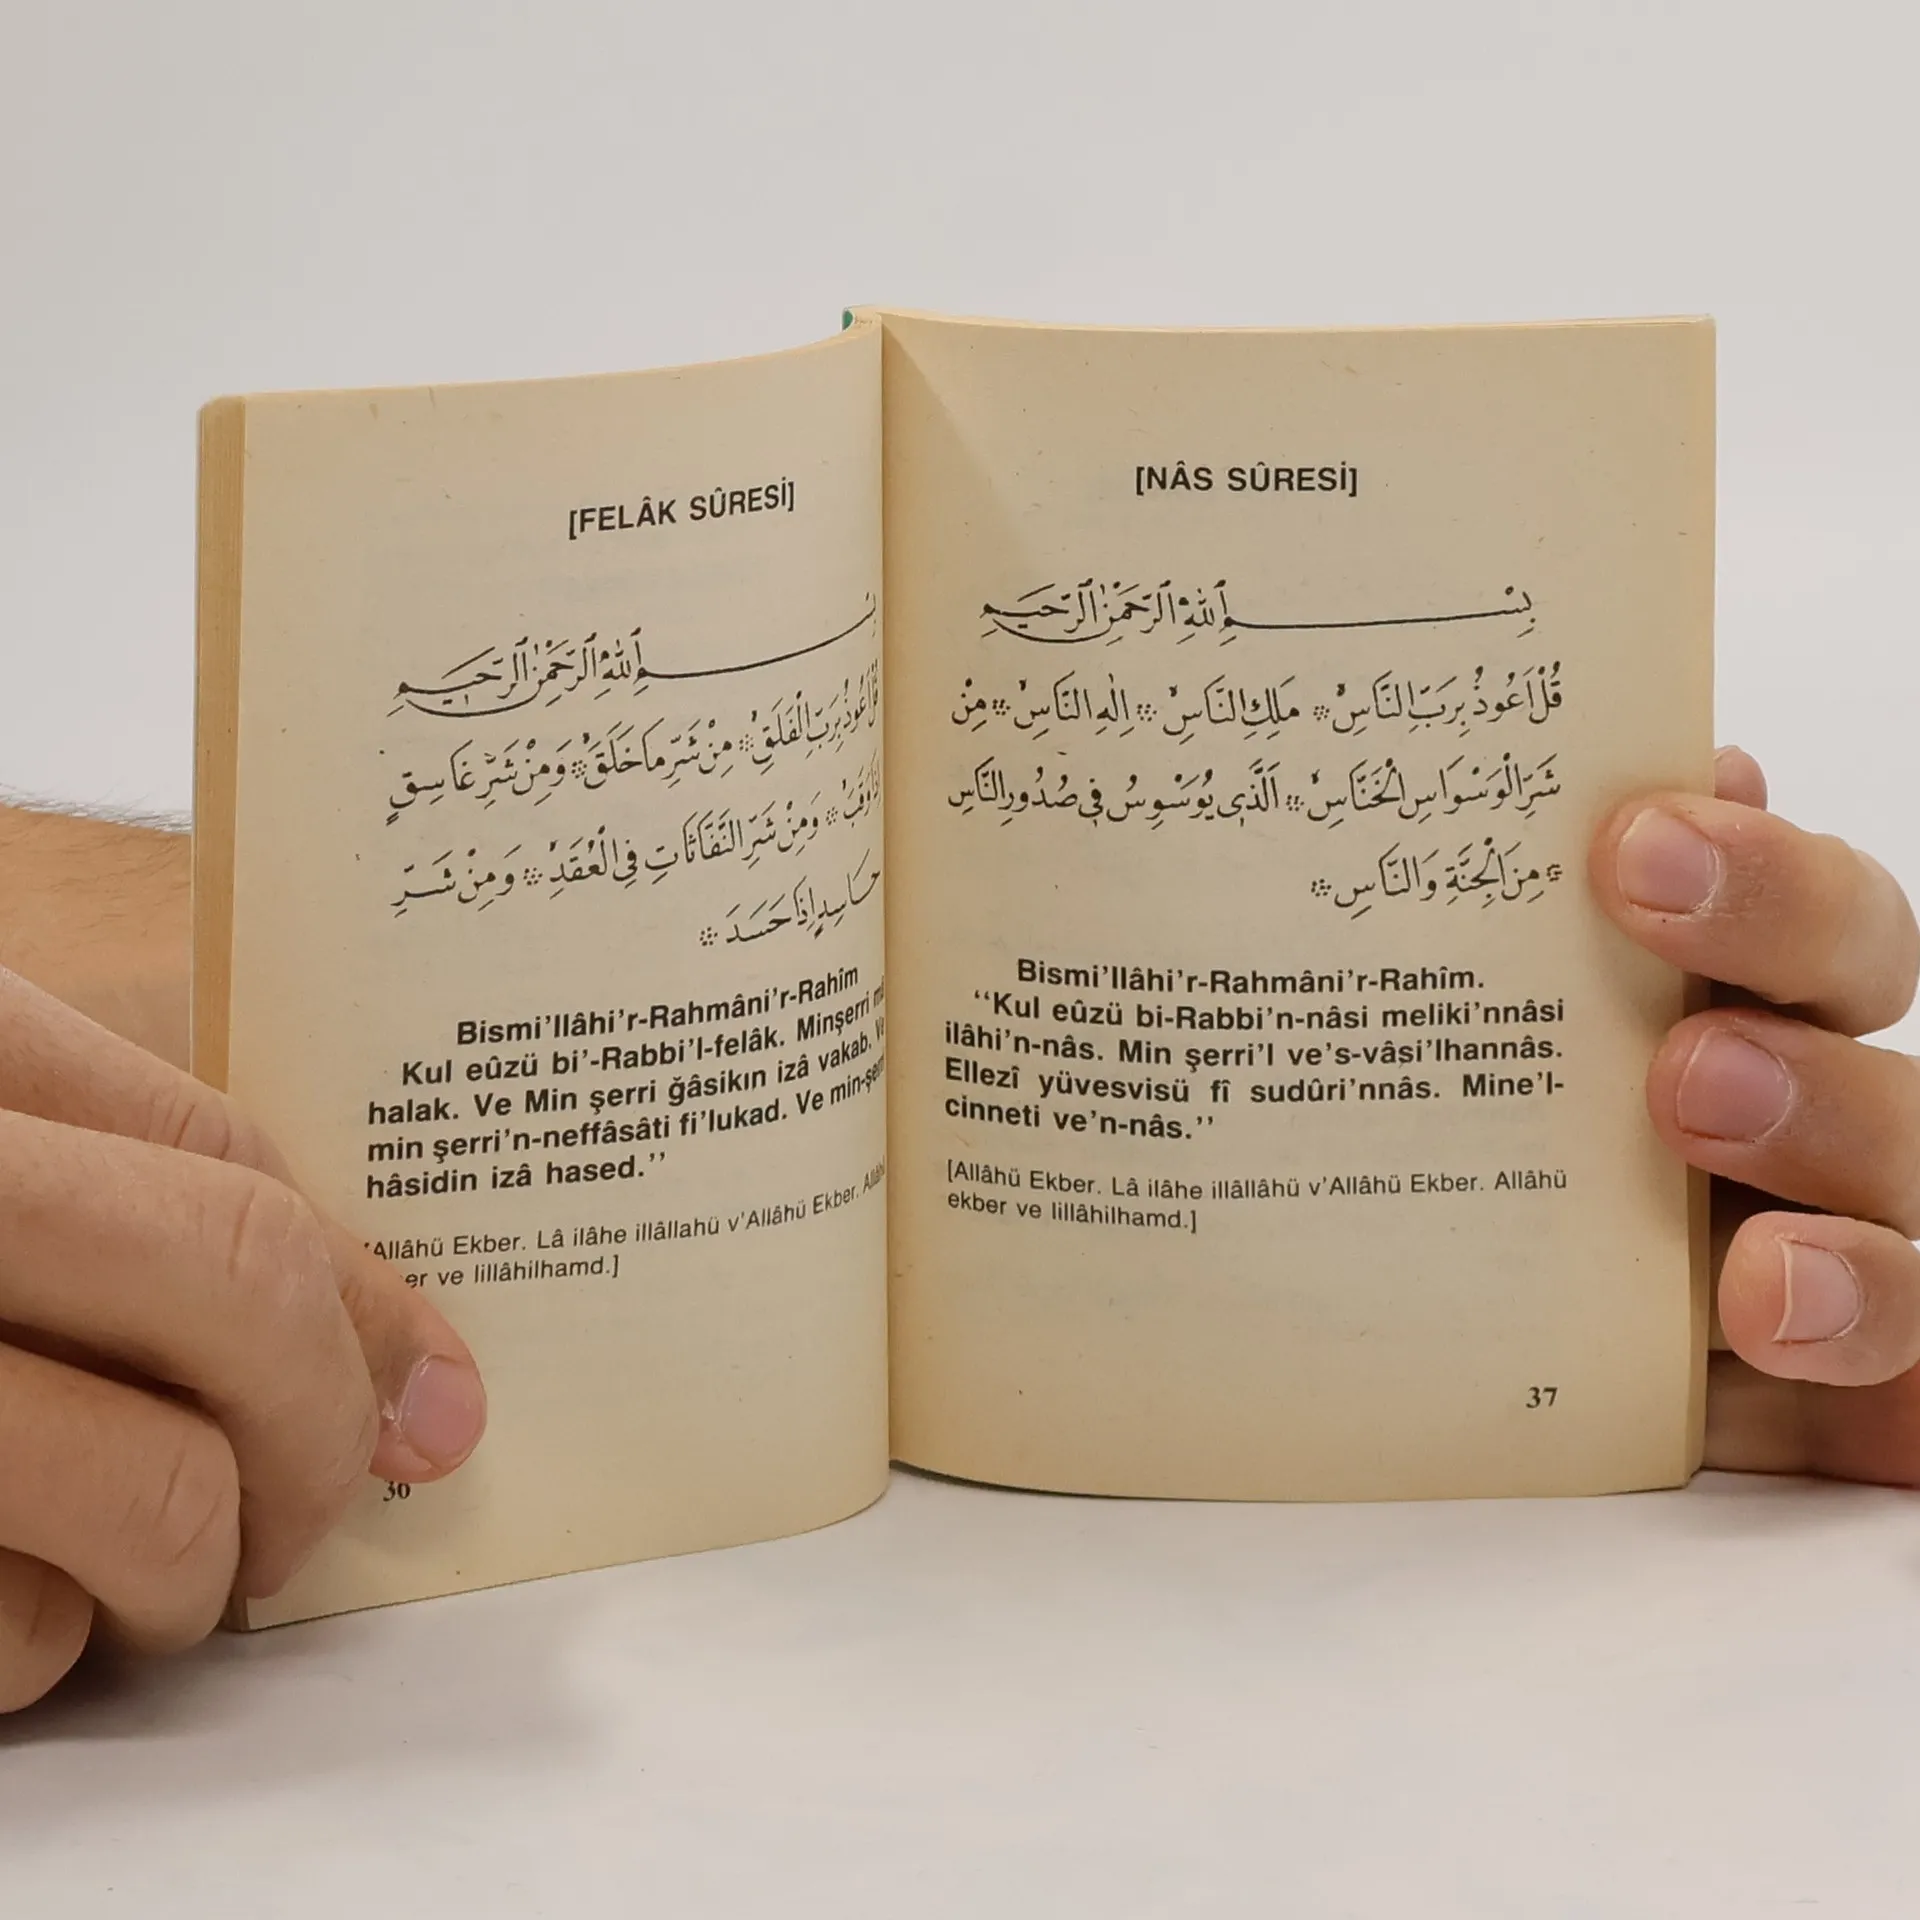 [FELÂK SÛRESİ]
بِسْــــمِ ٱللّٰهِ ٱلرَّحْمٰنِ ٱلرَّحِيمِ
قُلْ اَعُوذُ بِرَبِّ الْفَلَقِۙ ❊ مِنْ شَرِّ مَا خَلَقَۙ ❊ وَمِنْ شَرِّ غَاسِقٍ
اِذَا وَقَبَۙ ❊ وَمِنْ شَرِّ النَّفَّاثَاتِ فِي الْعُقَدِۙ ❊ وَمِنْ شَرِّ
حَاسِدٍ اِذَا حَسَدَ ❊
Bismi’llâhi’r-Rahmâni’r-Rahîm
Kul eûzü bi’-Rabbi’l-felâk. Minşerri
halak. Ve Min şerri ğâsikın izâ vakab.
min şerri’n-neffâsâti fi’lukad. Ve
hâsidin izâ hased.’’
Allâhü Ekber. Lâ ilâhe illâllahü v’Allâhü Ekber.
ve lillâhilhamd.]
[NÂS SÛRESİ]
بِسْــــمِ ٱللّٰهِ ٱلرَّحْمٰنِ ٱلرَّحِيمِ
قُلْ اَعُوذُ بِرَبِّ النَّاسِۙ ❊ مَلِكِ النَّاسِۙ ❊ اِلٰهِ النَّاسِۙ ❊ مِنْ
شَرِّ الْوَسْوَاسِ الْخَنَّاسِۙ ❊ اَلَّذِي يُوَسْوِسُ فِي صُدُورِ النَّاسِ
❊ مِنَ الْجِنَّةِ وَالنَّاسِ ❊
Bismi’llâhi’r-Rahmâni’r-Rahîm.
‘‘Kul eûzü bi-Rabbi’n-nâsi meliki’nnâsi
ilâhi’n-nâs. Min şerri’l ve’s-vâsi’lhannâs.
Ellezî yüvesvisü fî sudûri’nnâs. Mine’l-
cinneti ve’n-nâs.’’
[Allâhü Ekber. Lâ ilâhe illâllâhü v’Allâhü Ekber. Allâhü
ekber ve lillâhilhamd.]
37